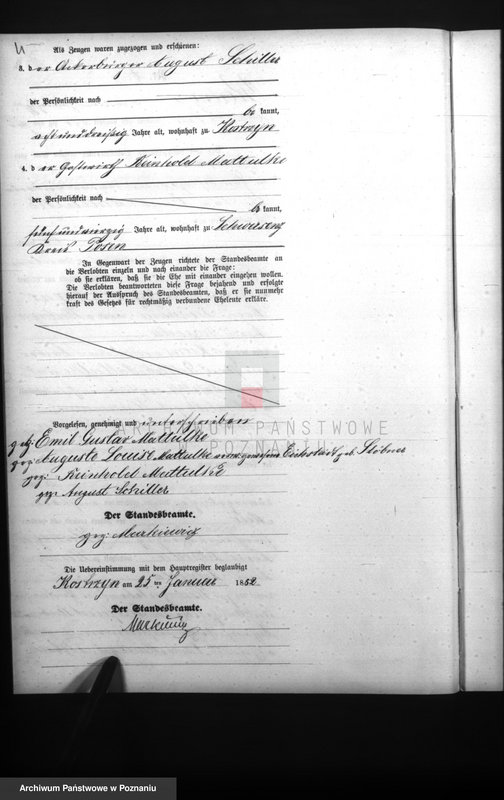 Als Zeugen waren zugezogen und erschienen:
3. der Ackerbürger August Schiller
der Persönlichkeit nach
be kannt,
achtunddreißig Jahre alt, wohnhaft zu Kostrzyn
4. der Gastwirth Reinhold Mattulke
der Persönlichkeit nach
be kannt,
Jahre alt, wohnhaft zu Schwersenz
Kreis Posen
In Gegenwart der Zeugen richtete der Standesbeamte an
die Verlobten einzeln und nach einander die Frage:
ob sie erklären, daß sie die Ehe mit einander eingehen wollen.
Die Verlobten beantworteten diese Frage bejahend und erfolgte
hierauf der Ausspruch des Standesbeamten, daß er sie nunmehr
kraft des Gesetzes für rechtmäßig verbundene Eheleute erkläre.
ARCHIWUM PAŃSTWOWE
POZNANIU
Vorgelesen, genehmigt und unterschrieben
gez: Emil Gustav Mattulke
gez: Auguste Louise Mattulke geb. Stöbner
gez: Reinhold Mattulke
gez. August Schiller
Der Standesbeamte.
gez: Markiewicz
Die Uebereinstimmung mit dem Hauptregister beglaubigt
Kostrzyn am 25 ten Januar 1882
Der Standesbeamte.
Archiwum Państwowe w Poznaniu